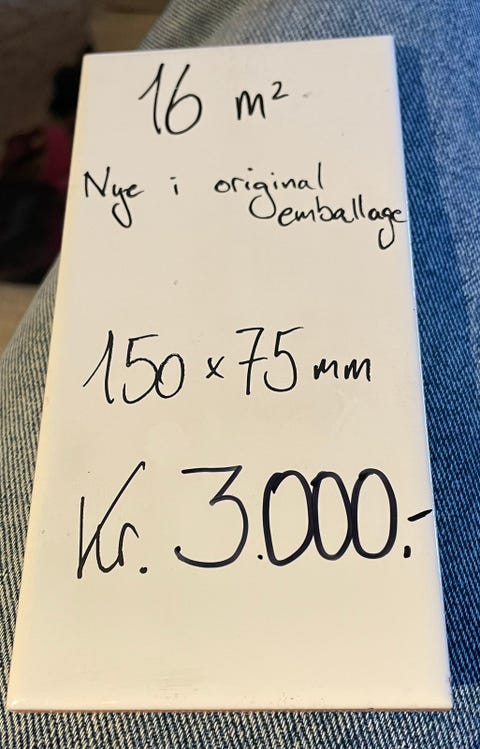 16 m²
Nye i original
emballage
150 x 75 mm
Kr. 3.000.-